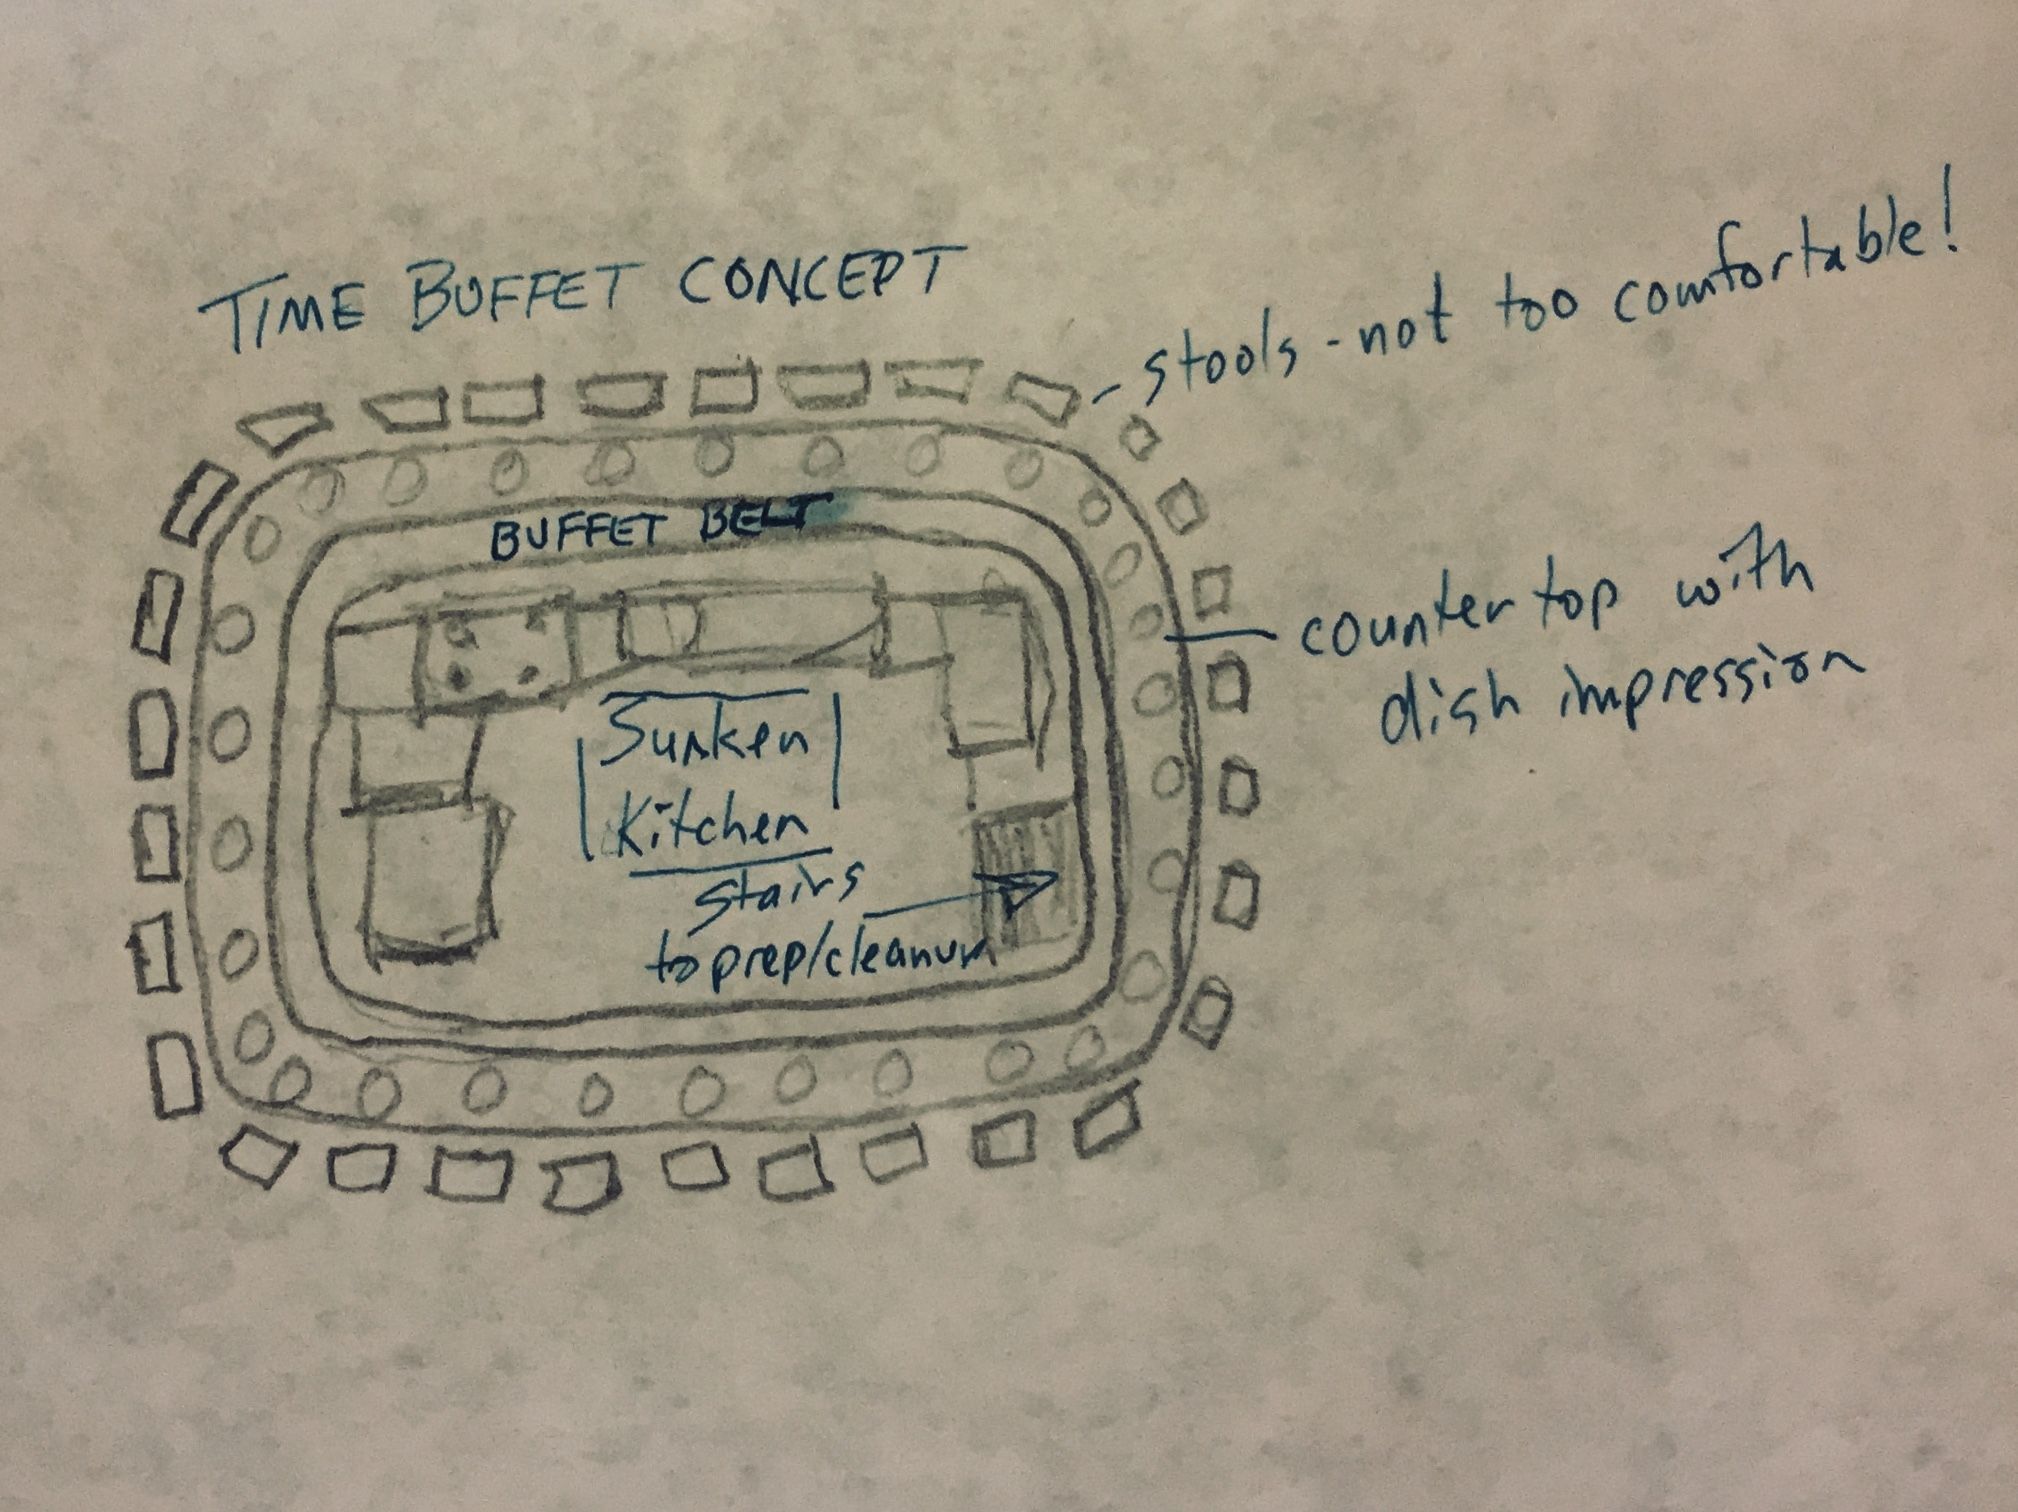 TIME BUFFET CONCEPT
stools - not too comfortable!
BUFFET BELT
counter top with
dish impression
Sunken
Kitchen
stairs
to prep/cleanup